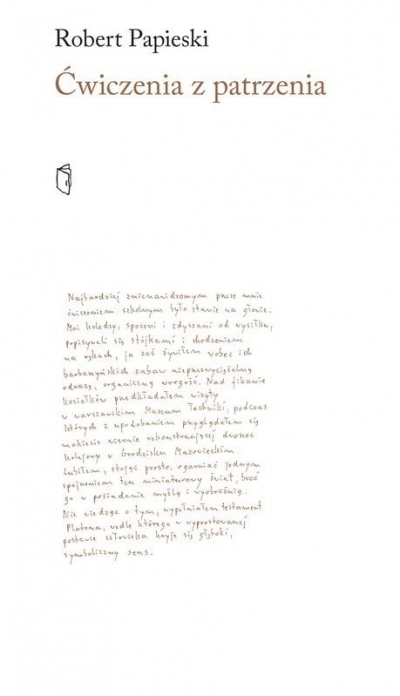 Robert Papieski
Ćwiczenia z patrzenia
Najbardziej znienawidzonym przeze mnie
ćwiczeniem szkolnym było stanie na głowie.
Moi koledzy, spoceni i zdyszani od wysiłku,
popisywali się stójkami i chodzeniem
na rękach, ja zaś żywiłem wobec ich
barbarzyńskich zabaw nieprzezwyciężalną
odrazę, organiczną wrogość. Nad fikanie
koziołków przedkładałem wizyty
w warszawskim Muzeum Techniki, podczas
których z upodobaniem przyglądałem się
makiecie wiernie rekonstruującej dworzec
kolejowy w Grodzisku Mazowieckim.
Lubiłem, stojąc prosto, ogarniać jednym
spojrzeniem ten miniaturowy świat, brać
go w posiadanie myślą i wyobraźnią.
Nie wiedząc o tym, wypełniałem testament
Platona, wedle którego w wyprostowanej
postawie człowieka kryje się głęboki,
symboliczny sens.